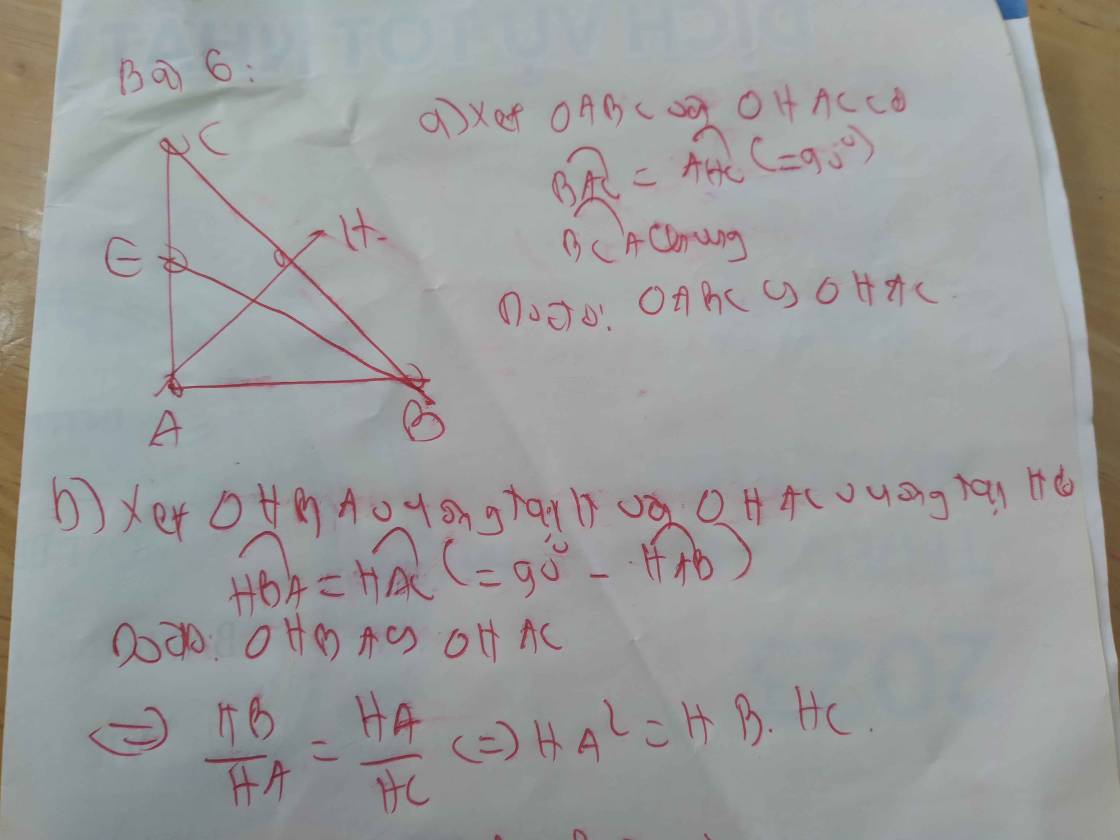 Bài 6:
a) Xét △ABC và △HAC có
C
BAC = AHC (= 90°)
H
E
BCA chung
Do đó: △ABC ∽ △HAC.
A
B
b) Xét △HBA vuông tại H và △HAC vuông tại H có
HBA = HAC (= 90° - HAB)
Do đó: △HBA ∽ △HAC
⇒ HB/HA = HA/HC ⇔ HA² = HB.HC.